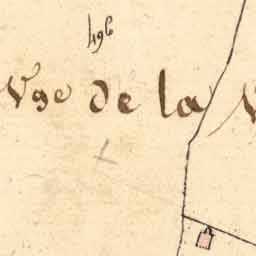 496
Vge de la